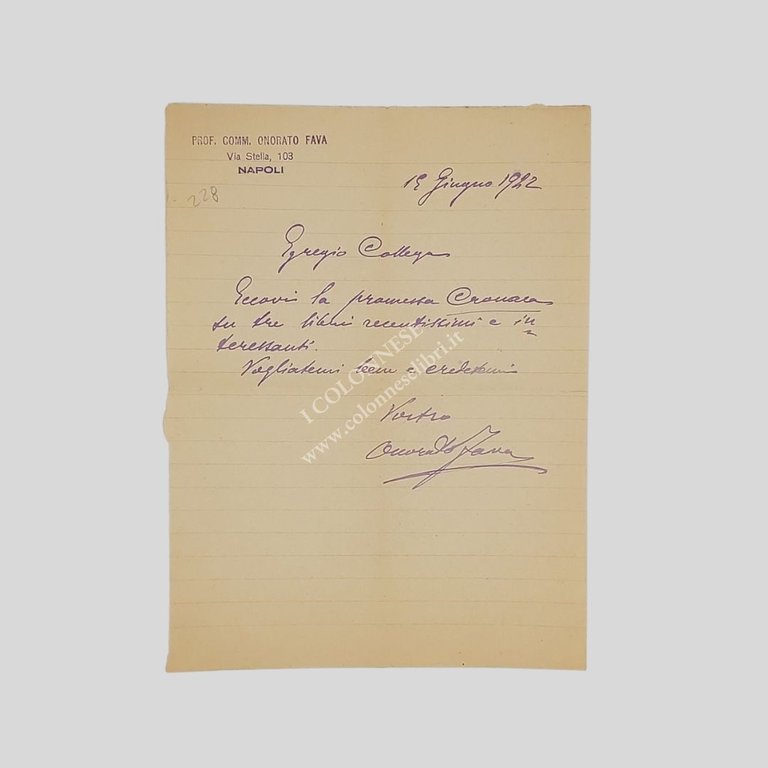 PROF. COMM. ONORATO FAVA
Via Stella, 103
NAPOLI
228
15 Giugno 1922
Egregio Collega
Eccovi la promessa Cronaca
su tre libri recentissimi e in
teressanti.
Vogliatemi bene e credetemi
Vostro
Onorato Fava
I COLONNESE
www.colonneselibri.it